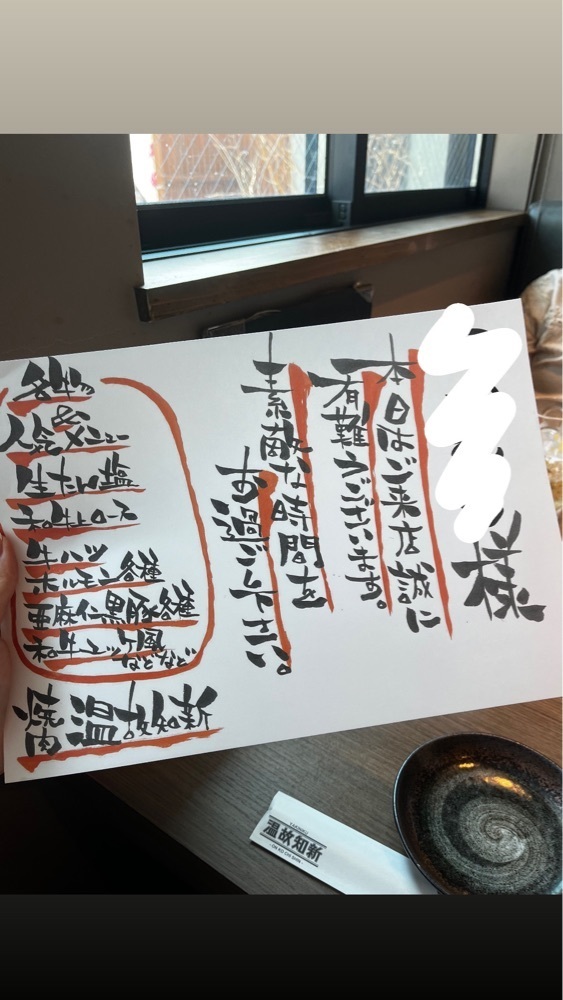 様
本日はご来店誠に
有難うございます。
素敵な時間を
お過ごし下さい。
名物
&
人気メニュー
生たん塩
和牛上ロース
牛ハツ
ホルモン各種
亜麻仁黒豚各種
和牛ユッケ風
などなど
焼肉 温故知新
温故知新